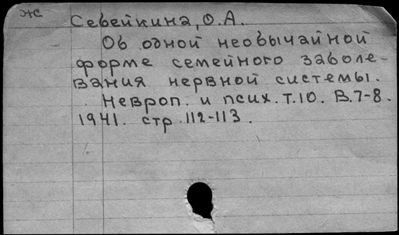 жс
Севейкина, О.А.
Об одной необычайной
форме семейного заболе-
вания нервной системы.
Невроп. и псих. т.10. В.7-8.
1941. стр. 112-113.